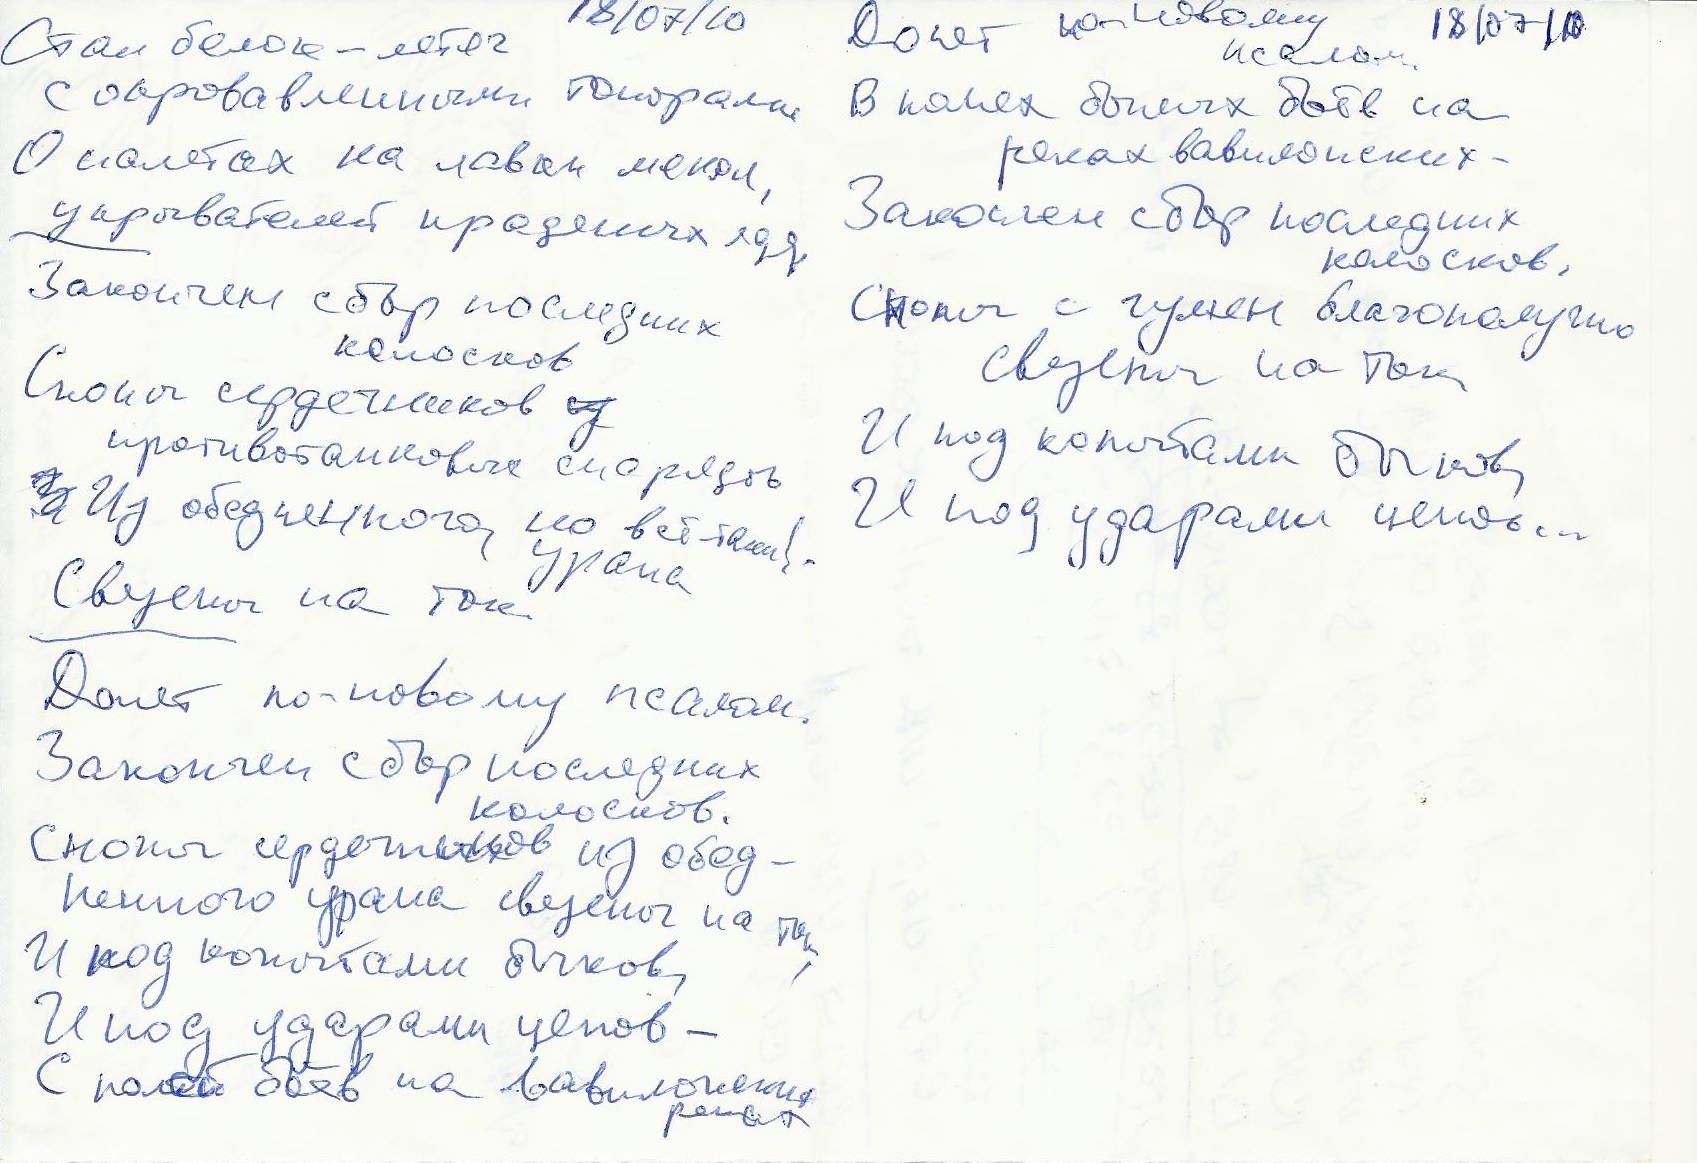 18/07/10
Стаи белок-летяг
с окровавленными топорами
О налетах на лавки менял,
укрывателей краденых ядр
Закончен сбор последних
колосков
Снопы сердечников
противотанковых снарядов
Из обедненного, но всё-таки! -
урана
Свезены на ток
Допет по-новому псалом.
Закончен сбор последних
колосков.
Снопы сердечников из обед-
ненного урана свезены на ток,
И под копытами быков,
И под ударами цепов -
С полей боёв на вавилонских
реках
Допет по-новому 18/07/10
псалом.
В полях былых боёв на
реках вавилонских -
Закончен сбор последних
колосков.
Снопы с гумен благополучно
свезены на ток
И под копытами быков,
И под ударами цепов...